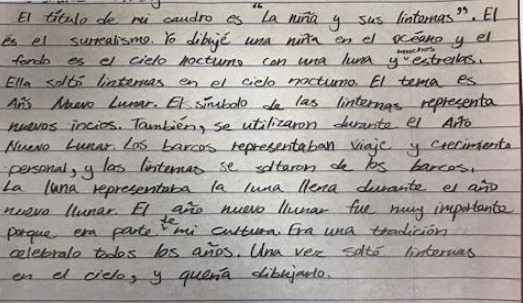 El título de mi caudro es "La niña y sus linternas". El
es el surrealismo. Yo dibujé una niña en el océano y el
fondo es el cielo nocturno con una luna y muchos estrellas.
Ella soltó linternas en el cielo nocturno. El tema es
Año Nuevo Lunar. El símbolo de las linternas representa
nuevos incios. También, se utilizaron durante el Año
Nuevo Lunar. Los barcos representaban viaje y crecimiento
personal, y las linternas se soltaron de los barcos.
La luna representaba la luna llena durante el año
nuevo llunar. El año nuevo llunar fue muy importante
porque era parte de mi cultura. Era una tradición
celebralo todos los años. Una vez soltó linternas
en el cielo, y quería dibujarlo.